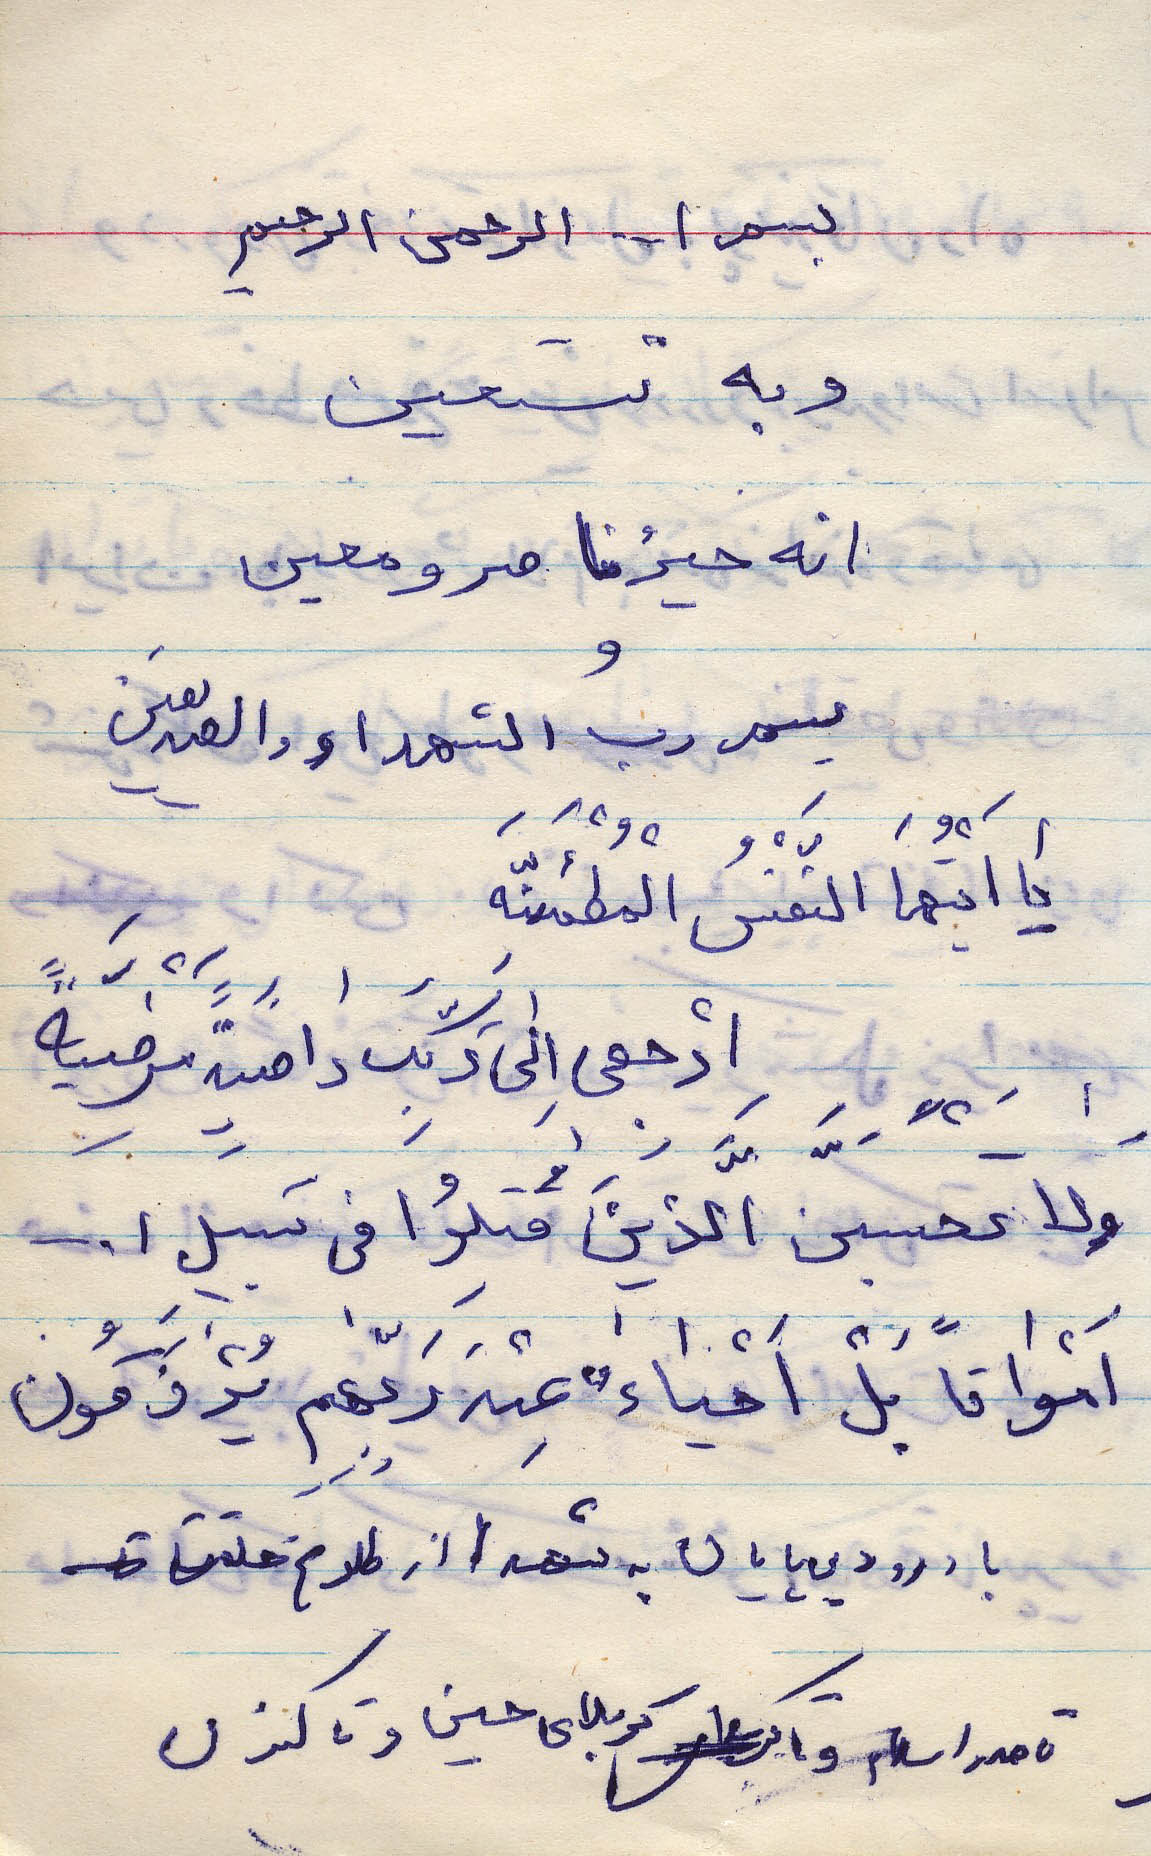 بسم ا... الرحمن الرحیم
و به نستعین
انه خیرُ ناصر و معین
و
بسم رب الشهداء والصدیقین
یا اَیَّتُهَا النَّفْسُ الْمُطْمَئِنَّه
اْرجعی اِلیٰ رَبِّکِ راضیةً مَّرْضِیَّةً
وَلا تحسبن الَّذینَ قُتِلوُا فی سَبیلِ ا...
اَمْواتاً بَلْ اَحْیاءٌ عِنْدَ رَبِّهِم یُرْزَقُونَ
با درود بی پایان به شهدا از طلوع خلقت تا
تا صدر اسلام و تا کربلای حسین و تا کنون